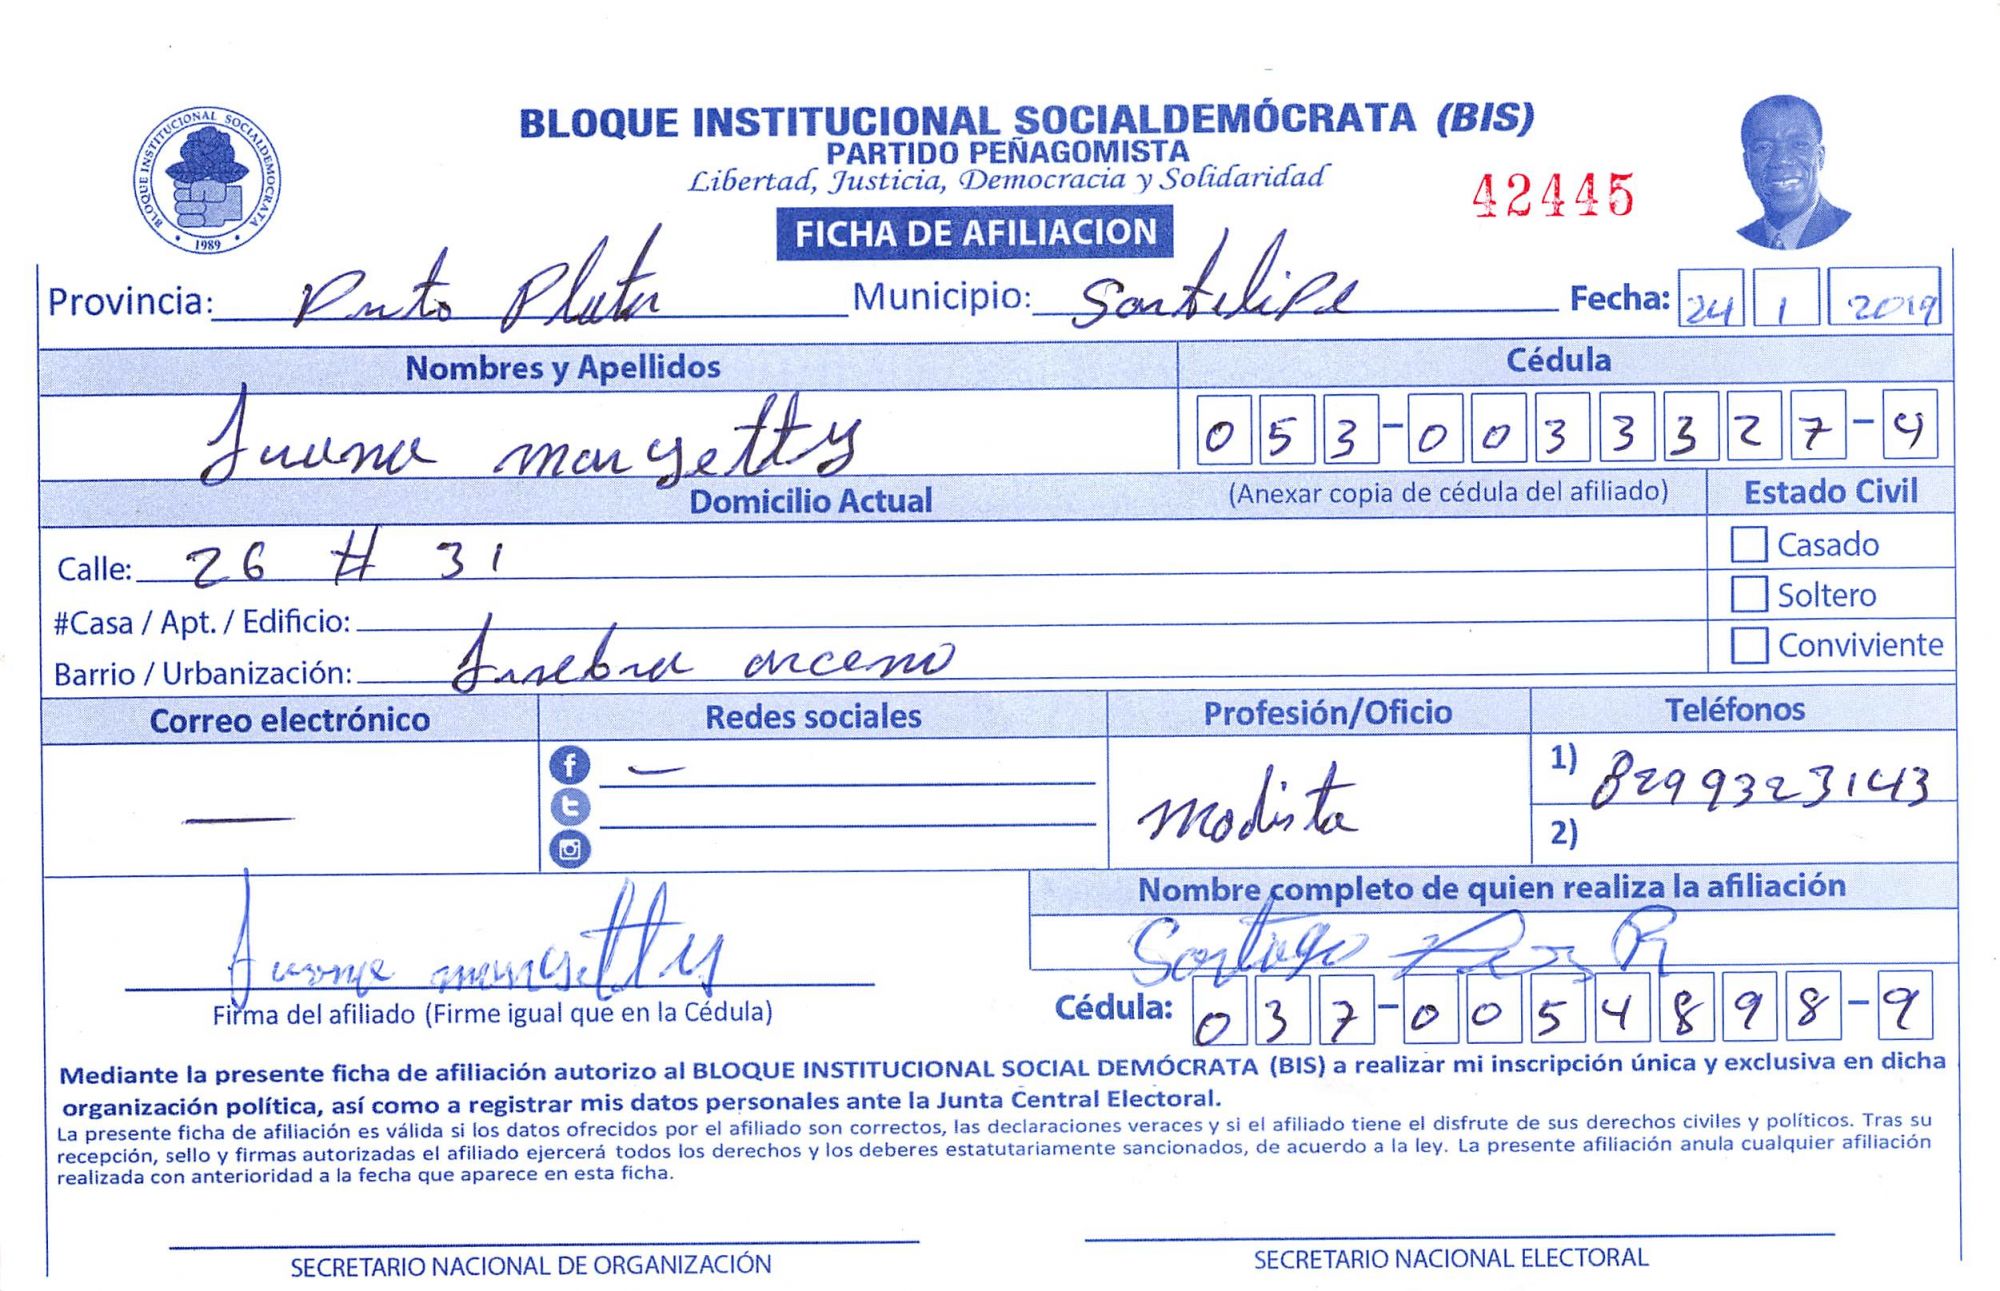 BLOQUE INSTITUCIONAL SOCIALDEMÓCRATA (BIS)
PARTIDO PEÑAGOMISTA
Libertad, Justicia, Democracia y Solidaridad
42445
BLOQUE INSTITUCIONAL SOCIALDEMOCRATA
1989
FICHA DE AFILIACION
Provincia: Puto Plata Municipio: Sanfelipe Fecha: 24 1 2019
Nombres y Apellidos Cédula
Juana margetty 053-0033327-4
Domicilio Actual (Anexar copia de cédula del afiliado) Estado Civil
Calle: 26 # 31 Casado
#Casa / Apt. / Edificio: Soltero
Barrio / Urbanización: Conviviente
Correo electrónico Redes sociales Profesión/Oficio Teléfonos
— — Modista 1) 8299323143
2)
Nombre completo de quien realiza la afiliación
Juana margetty Santiago R
Firma del afiliado (Firme igual que en la Cédula) Cédula: 037-0054898-9
Mediante la presente ficha de afiliación autorizo al BLOQUE INSTITUCIONAL SOCIAL DEMÓCRATA (BIS) a realizar mi inscripción única y exclusiva en dicha
organización política, así como a registrar mis datos personales ante la Junta Central Electoral.
La presente ficha de afiliación es válida si los datos ofrecidos por el afiliado son correctos, las declaraciones veraces y si el afiliado tiene el disfrute de sus derechos civiles y políticos. Tras su
recepción, sello y firmas autorizadas el afiliado ejercerá todos los derechos y los deberes estatutariamente sancionados, de acuerdo a la ley. La presente afiliación anula cualquier afiliación
realizada con anterioridad a la fecha que aparece en esta ficha.
SECRETARIO NACIONAL DE ORGANIZACIÓN SECRETARIO NACIONAL ELECTORAL